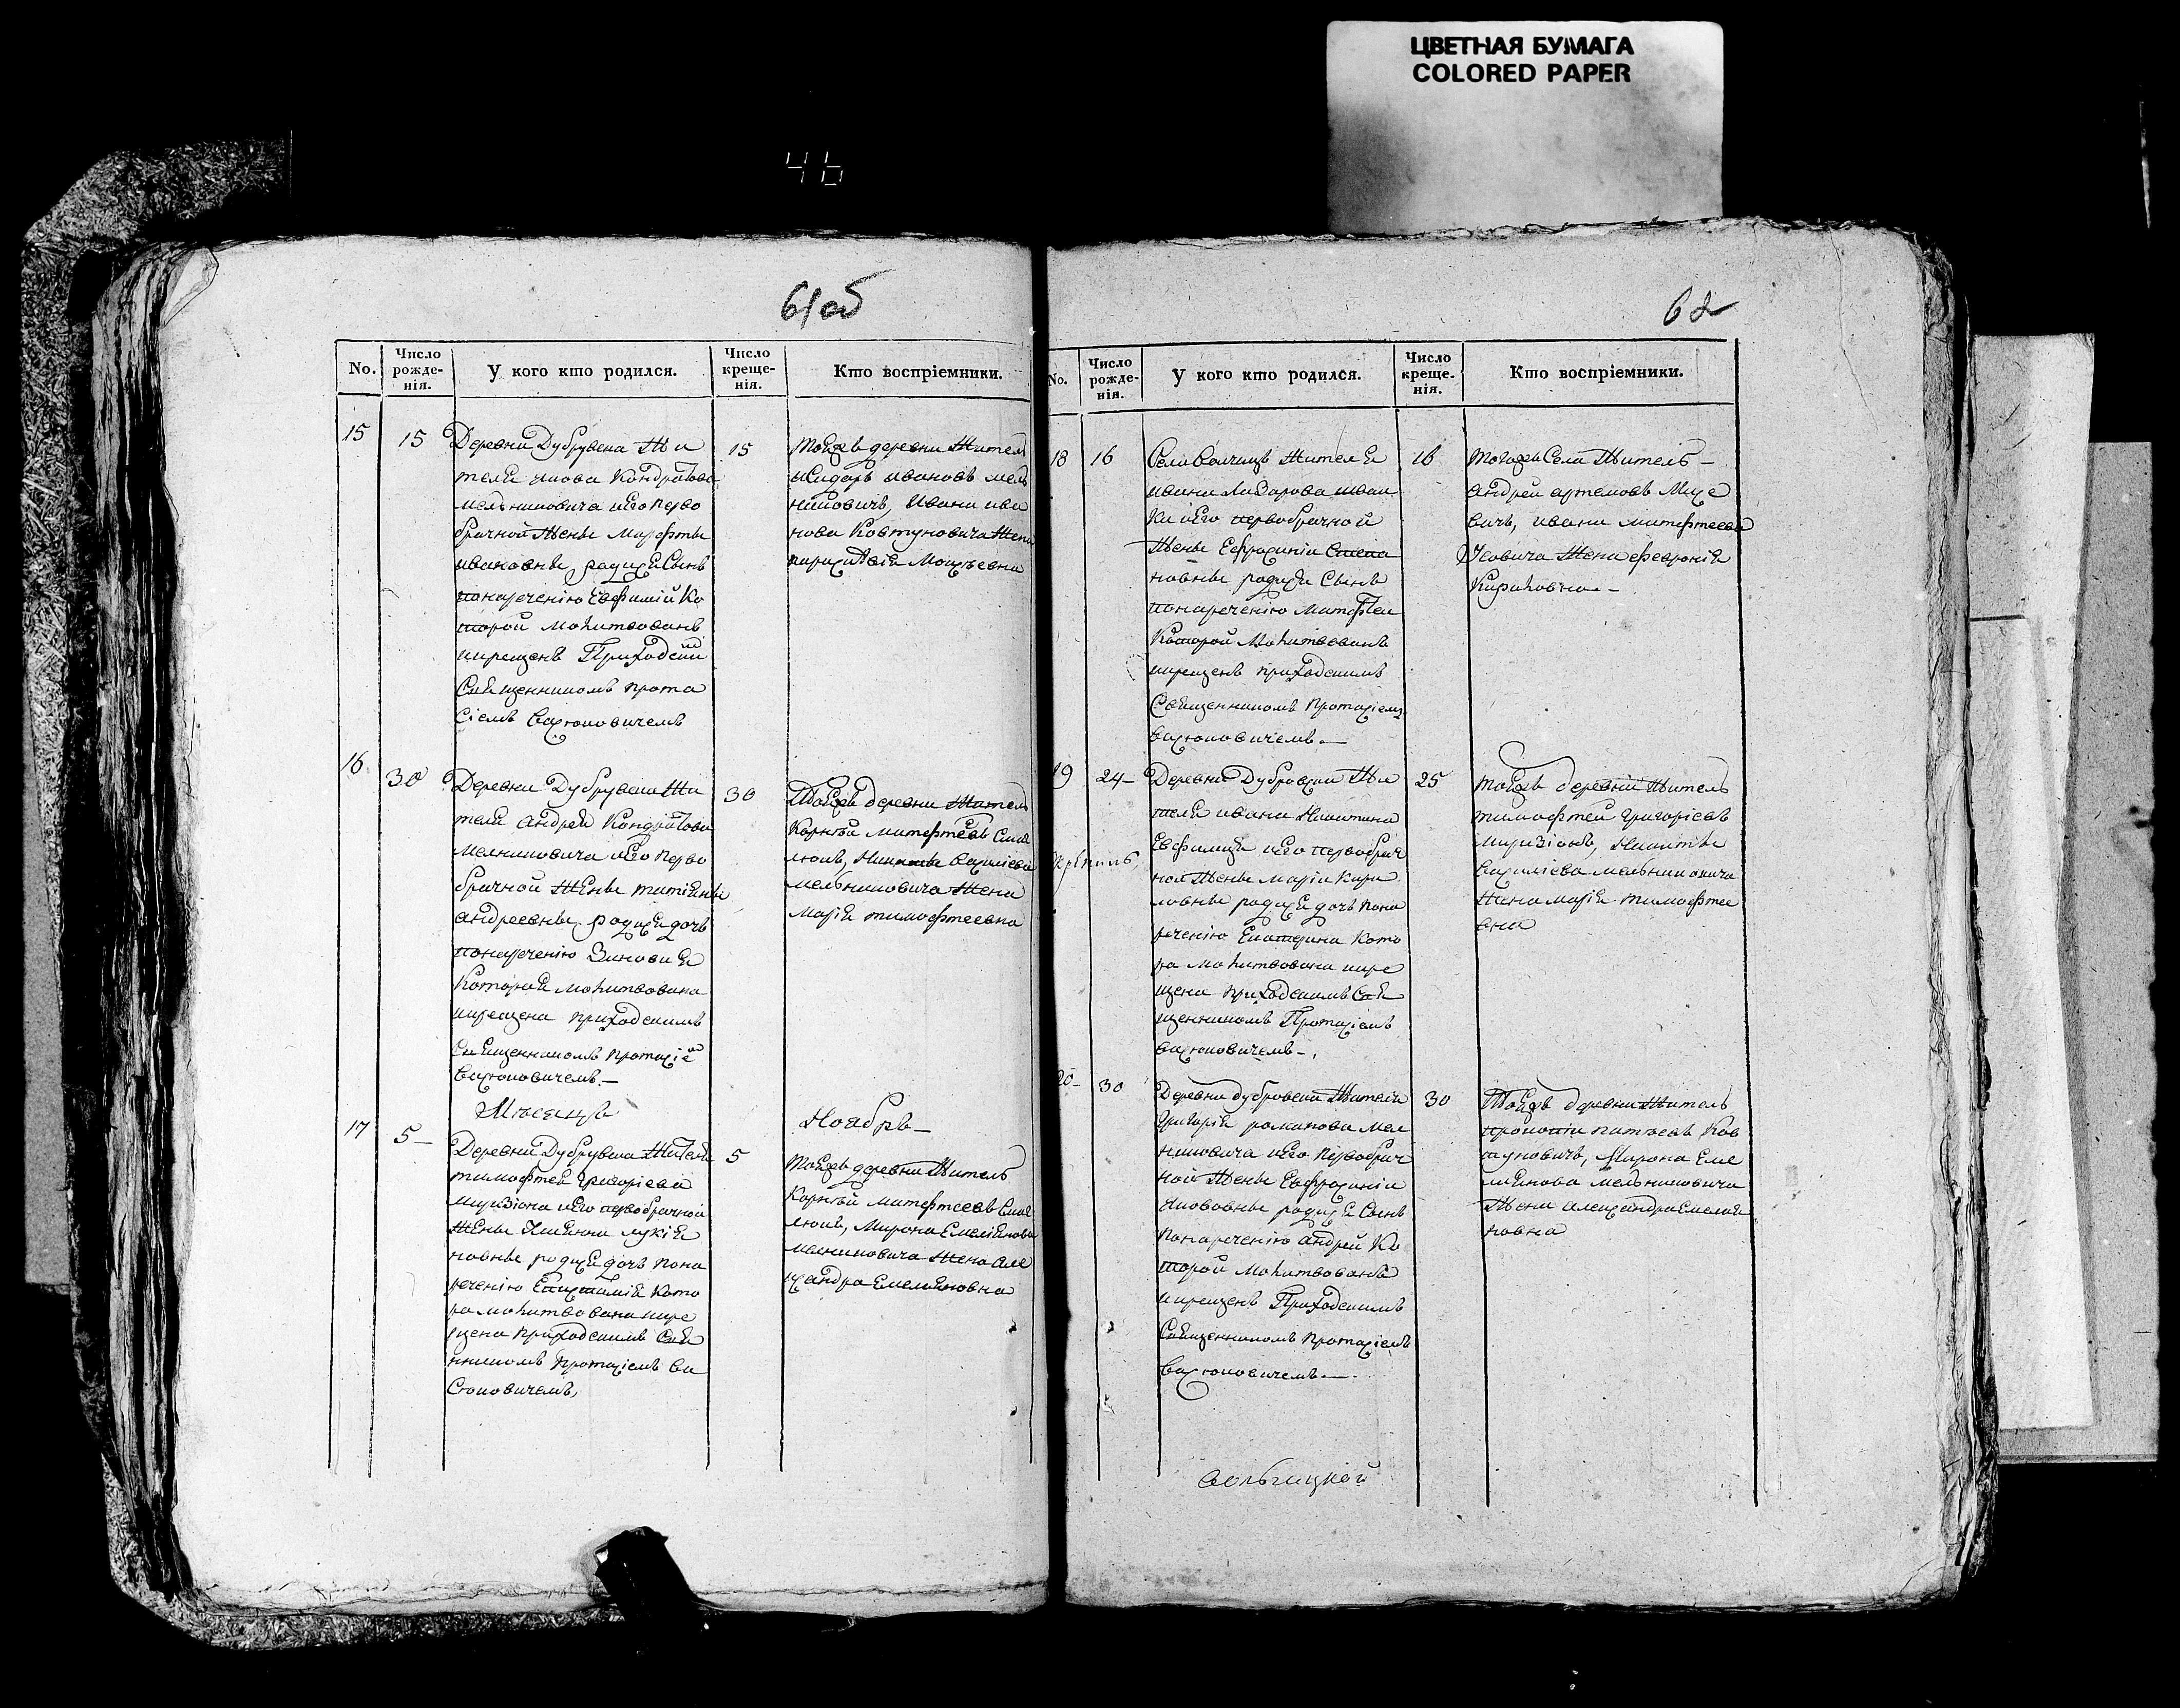 ЦВЕТНАЯ БУМАГА
COLORED PAPER
46
61об
No.
Число рожде-нія.
У кого кто родился.
Число креще-нія.
Кто воспріемники.
15
15
Деревни Дубрувки Жи
теля Якова Кондратова
мельниковича иего перво
брачной Женѣ Марфтѣ
ивановнѣ родися Сынъ
понареченію Евфимій Ко
торой молитвованъ
икрещенъ Приходским
Священникомъ прота
сіемъ васюковичемъ
15
тоеяжъ деревни Житель
исидоръ ивановъ мель
никовичъ, ивана ива
нова Ковтуновича Жена
параскевія Моисъевна
16
30
Деревни Дубрувки Жи
теля андрея Кондратова
мелниковича иего перво
брачной Женѣ татіянѣ
андреевнѣ родися дочь
понареченію Зиновия
Которая молитвована
икрещена приходскимъ
Священникомъ протасіе
васюковичемъ.—
30
Тоеяжъ деревни Житель
Корнѣй матфтеевъ
Никиты василіева
мельниковича Жена
Марія тимофтеевна
Мѣсяцъ
Ноябрь—
17
5—
Деревни Дубрувки Жителя
тимофтея григоріева
миризіона иего первобрачной
Женѣ Ульянѣ лукія
новнѣ родися дочь пона
реченію Евстафія кото
ра молитвована икре
щена приходскимъ Свя
нникомъ протасіемъ ва
Сюковичемъ,
5
тоеяжъ деревни Житель
Корнѣй матфтеевъ
Мирона Емеліянова
мелниковича Жена Але
ксандра Емеляновна
62
No.
Число рожде-нія.
У кого кто родился.
Число креще-нія.
Кто воспріемники.
18
16
Села Волчицъ Жителя
ивана лазарова
иего первобрачной
Женѣ Ефросиніи Степа
новнѣ родися Сынъ
понареченію матфтеи
Которой Молитвованъ
икрещенъ приходскимъ
Священникомъ протасіемъ
васюковичемъ.—
16
тогожъ Села Житель—
андрей артемовъ
вичъ, ивана матфтеева
Жена февронія
Кириловна.—
19
24—
Деревни Дубровки Жи
теля ивана Никитина
иего первобрач
ной Женѣ маріи кири
ловнѣ родися дочь пона
реченію Екатерина Кото
ра молитвована икре
щена приходскимъ Свя
щенникомъ Протасіемъ
васюковичемъ—
25
тоеяжъ деревни Житель
тимофтей григоріевъ
миризіонъ, Никиты
василіева мельниковича
Жена марія тимофте
вна
20—
30
Деревни дубровки Жителя
григорія романова мел
никовича иего первобрач
ной Женѣ Евфросиніи
Якововнѣ родися Сынъ
понареченію андрей Ко
торой молитвованъ
икрещенъ Приходскимъ
Священникомъ протасіемъ
васюковичемъ.—
30
Тоеяжъ деревни Житель
прокопій Ков
туновичъ, Мирона Еме
лиянова мельниковича
Жена александра Емелия
новна